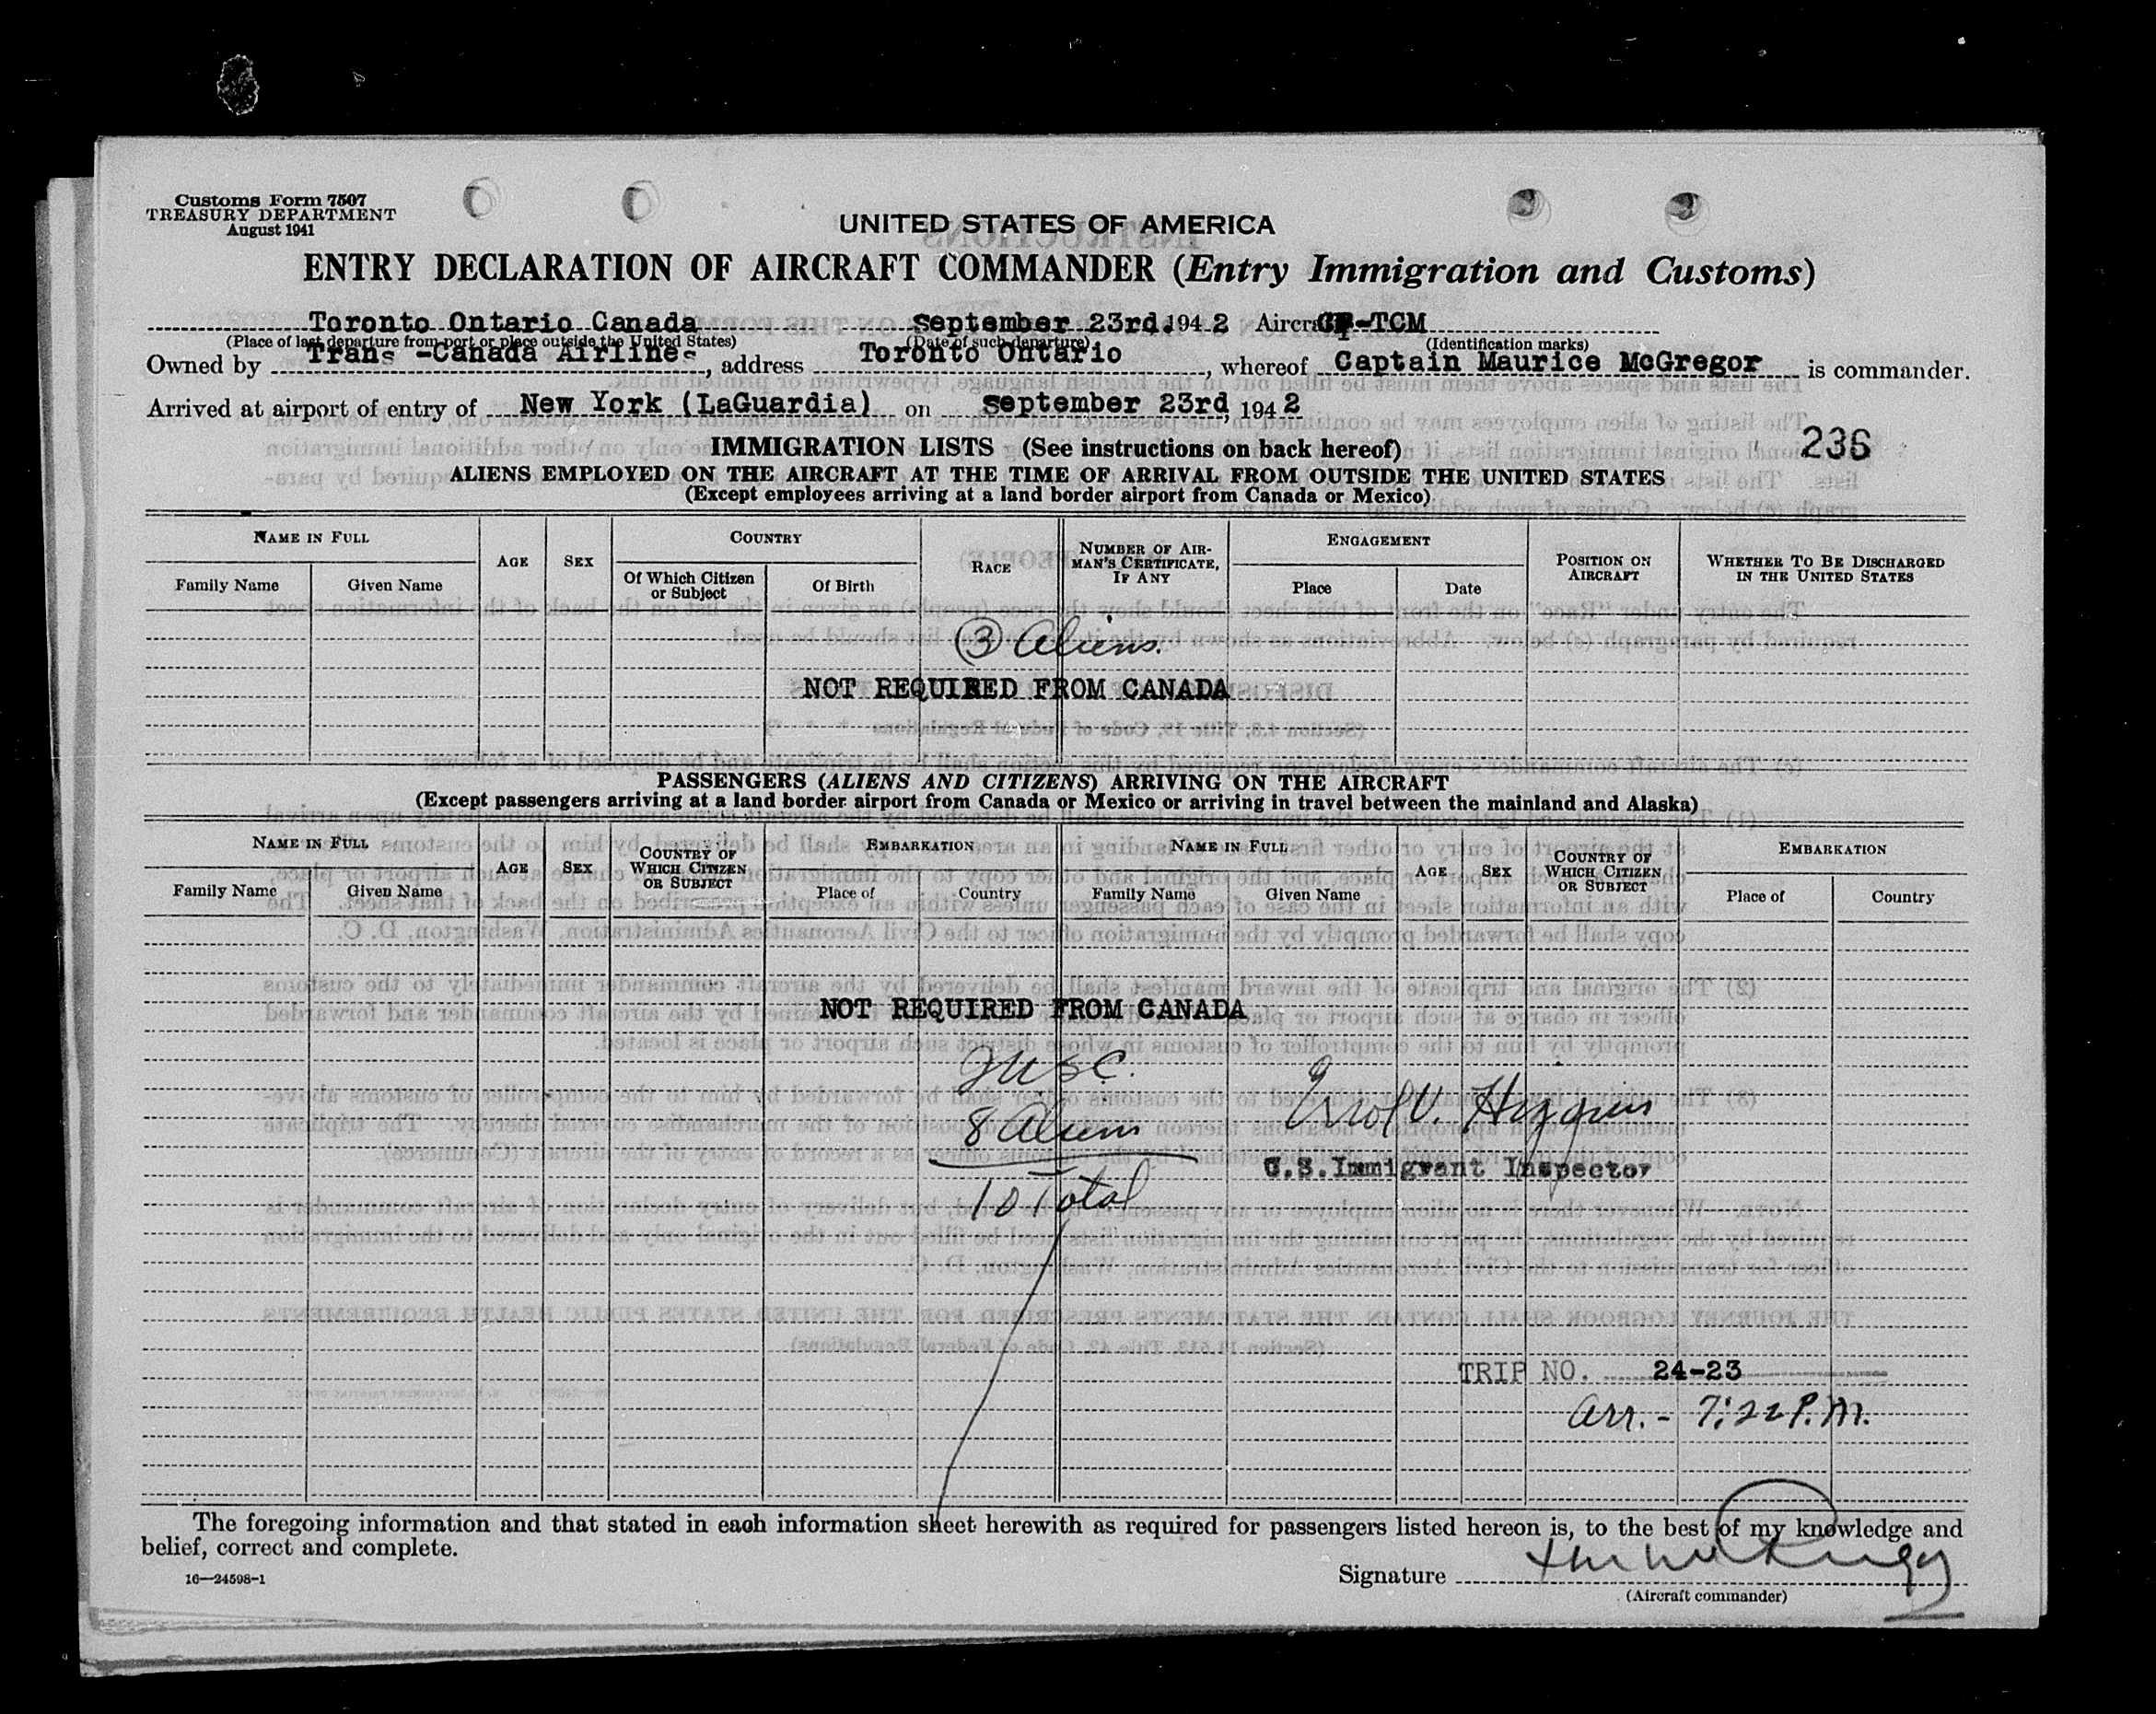 Customs Form 7507
TREASURY DEPARTMENT
August 1941
UNITED STATES OF AMERICA
ENTRY DECLARATION OF AIRCRAFT COMMANDER (Entry Immigration and Customs)
Toronto Ontario Canada September 23rd. 194 2 Aircraft CF-TCM
(Place of last departure from port or place outside the United States) (Date of such departure) (Identification marks)
Owned by Trans -Canada Airlines, address Toronto Ontario, whereof Captain Maurice McGregor is commander.
Arrived at airport of entry of New York (LaGuardia) on September 23rd, 194 2
IMMIGRATION LISTS (See instructions on back hereof)
236
ALIENS EMPLOYED ON THE AIRCRAFT AT THE TIME OF ARRIVAL FROM OUTSIDE THE UNITED STATES
(Except employees arriving at a land border airport from Canada or Mexico)
NAME IN FULL AGE SEX COUNTRY RACE NUMBER OF AIRMAN'S CERTIFICATE, IF ANY ENGAGEMENT POSITION ON AIRCRAFT WHETHER TO BE DISCHARGED IN THE UNITED STATES
Family Name Given Name Of Which Citizen or Subject Of Birth Place Date
3 Aliens.
NOT REQUIRED FROM CANADA
PASSENGERS (ALIENS AND CITIZENS) ARRIVING ON THE AIRCRAFT
(Except passengers arriving at a land border airport from Canada or Mexico or arriving in travel between the mainland and Alaska)
NAME IN FULL AGE SEX COUNTRY OF WHICH CITIZEN OR SUBJECT EMBARKATION NAME IN FULL AGE SEX COUNTRY OF WHICH CITIZEN OR SUBJECT EMBARKATION
Family Name Given Name Place of Country Family Name Given Name Place of Country
NOT REQUIRED FROM CANADA
2 USC.
8 Aliens
10 Total
Errol V. Higgins
U.S. Immigrant Inspector
TRIP NO. 24-23
Arr. - 7:22 P.M.
The foregoing information and that stated in each information sheet herewith as required for passengers listed hereon is, to the best of my knowledge and
belief, correct and complete.
16—24598-1
Signature
(Aircraft commander)